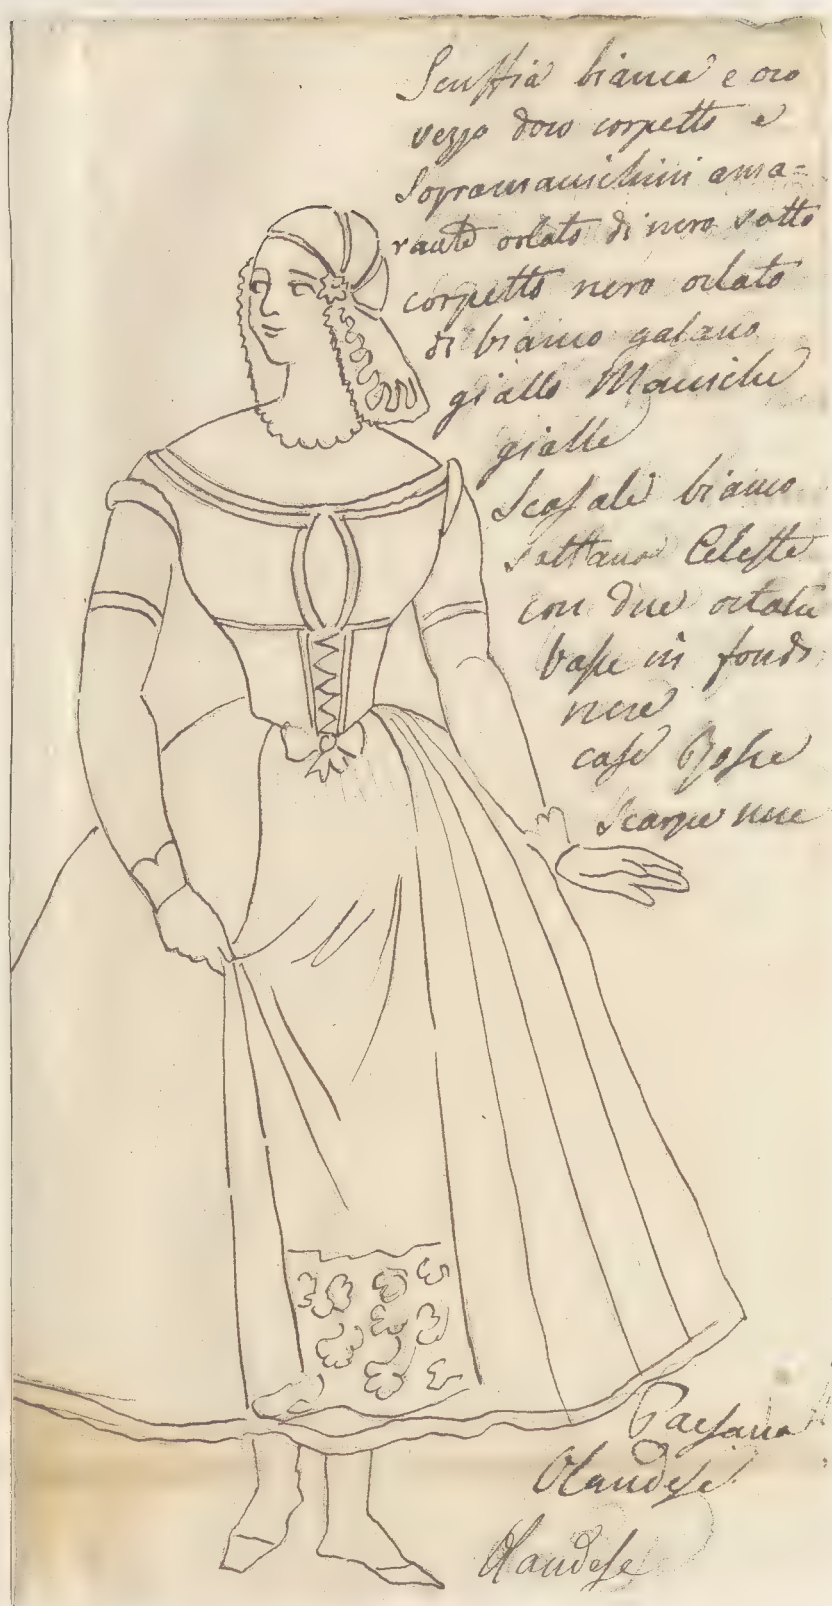 Scuffia bianca e oro
vezzo doro corpetto e
Sopramanichini ama=
rante orlato di nero sotto
corpetto nero orlato
di bianco galano
giallo Maniche
gialle
bianco
sottana Celeste
con due
in fondo
nere
Scarpe nere
Paesana
Olandese
Olandese